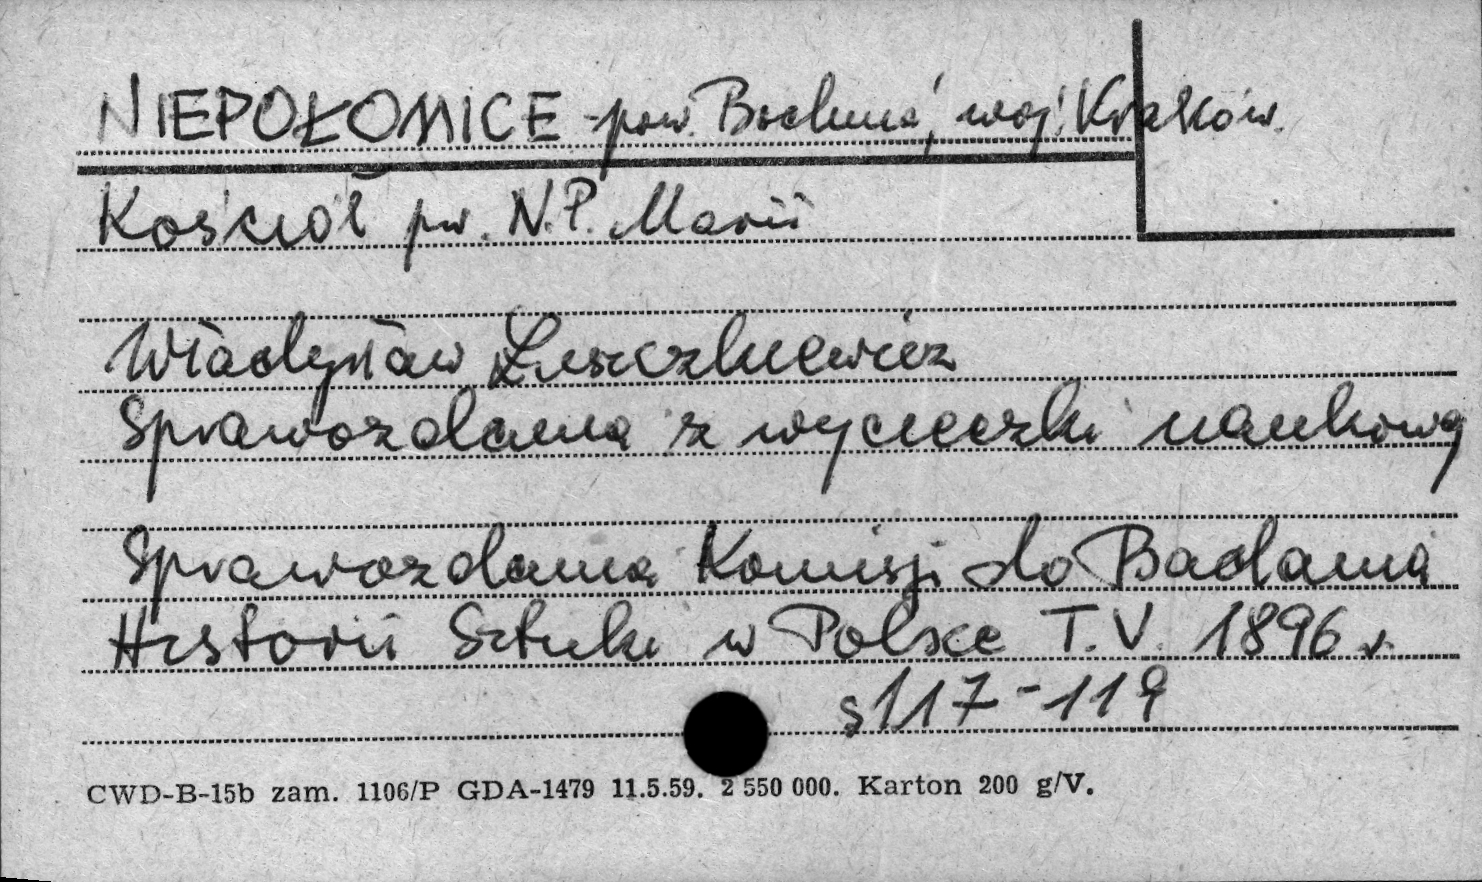 NIEPOŁOMICE - pow. Bochnia, woj. Kraków.
Kościół pw. N.P. Marii
Władysław Łuszczkiewicz
Sprawozdania z wycieczki naukową
Sprawozdania Komisji do Badania
Historii Sztuki w Polsce T.V. 1896 r.
s 117-119
CWD-B-15b zam. 1106/P GDA-1479 11.5.59. 2 550 000. Karton 200 g/V.